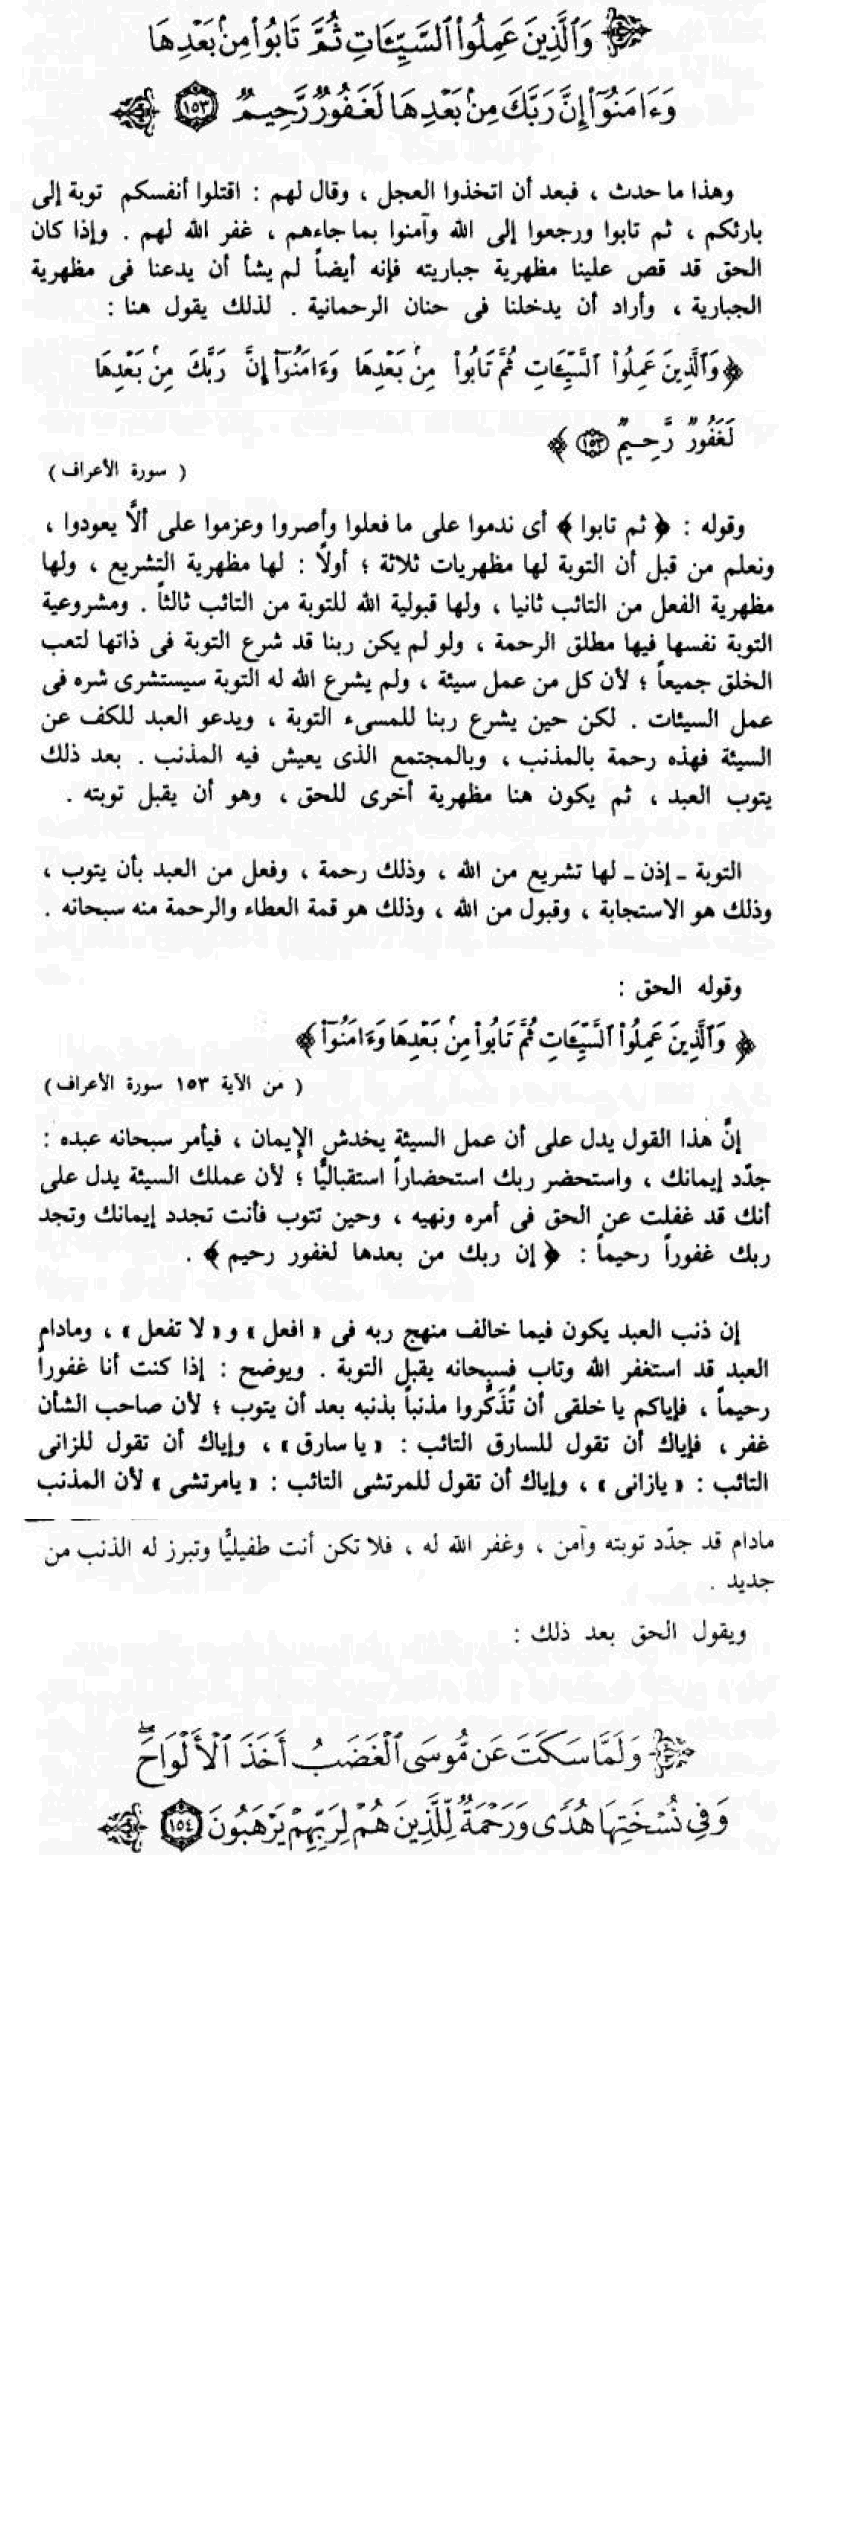 وَٱلَّذِينَ عَمِلُوا۟ ٱلسَّيِّـَٔاتِ ثُمَّ تَابُوا۟ مِنۢ بَعْدِهَا
وَءَامَنُوٓا۟ إِنَّ رَبَّكَ مِنۢ بَعْدِهَا لَغَفُورٌ رَّحِيمٌ ١٥٣
وهذا ما حدث ، فبعد أن اتخذوا العجل ، وقال لهم : اقتلوا أنفسكم توبة إلى
بارئكم ، ثم تابوا ورجعوا إلى الله وآمنوا بما جاءهم ، غفر الله لهم . وإذا كان
الحق قد قص علينا مظهرية جباريته فإنه أيضاً لم يشأ أن يدعنا فى مظهرية
الجبارية ، وأراد أن يدخلنا فى حنان الرحمانية . لذلك يقول هنا :
﴿ وَٱلَّذِينَ عَمِلُوا۟ ٱلسَّيِّـَٔاتِ ثُمَّ تَابُوا۟ مِنۢ بَعْدِهَا وَءَامَنُوٓا۟ إِنَّ رَبَّكَ مِنۢ بَعْدِهَا
لَغَفُورٌ رَّحِيمٌ ١٥٣ ﴾
( سورة الأعراف )
وقوله : ﴿ ثم تابوا ﴾ أى ندموا على ما فعلوا وأصروا وعزموا على ألَّا يعودوا ،
ونعلم من قبل أن التوبة لها مظهريات ثلاثة ؛ أولًا : لها مظهرية التشريع ، ولها
مظهرية الفعل من التائب ثانيا ، ولها قبولية الله للتوبة من التائب ثالثاً . ومشروعية
التوبة نفسها فيها مطلق الرحمة ، ولو لم يكن ربنا قد شرع التوبة فى ذاتها لتعب
الخلق جميعاً ؛ لأن كل من عمل سيئة ، ولم يشرع الله له التوبة سيستشرى شره فى
عمل السيئات . لكن حين يشرع ربنا للمسىء التوبة ، ويدعو العبد للكف عن
السيئة فهذه رحمة بالمذنب ، وبالمجتمع الذى يعيش فيه المذنب . بعد ذلك
يتوب العبد ، ثم يكون هنا مظهرية أخرى للحق ، وهو أن يقبل توبته .
التوبة ـ إذن ـ لها تشريع من الله ، وذلك رحمة ، وفعل من العبد بأن يتوب ،
وذلك هو الاستجابة ، وقبول من الله ، وذلك هو قمة العطاء والرحمة منه سبحانه .
وقوله الحق :
﴿ وَٱلَّذِينَ عَمِلُوا۟ ٱلسَّيِّـَٔاتِ ثُمَّ تَابُوا۟ مِنۢ بَعْدِهَا وَءَامَنُوٓا۟ ﴾
( من الآية ١٥٣ سورة الأعراف )
إنَّ هذا القول يدل على أن عمل السيئة يخدش الإيمان ، فيأمر سبحانه عبده :
جدّد إيمانك ، واستحضر ربك استحضاراً استقباليًّا ؛ لأن عملك السيئة يدل على
أنك قد غفلت عن الحق فى أمره ونهيه ، وحين تتوب فأنت تجدد إيمانك وتجد
ربك غفوراً رحيماً : ﴿ إن ربك من بعدها لغفور رحيم ﴾ .
إن ذنب العبد يكون فيما خالف منهج ربه فى « افعل » و « لا تفعل » ، ومادام
العبد قد استغفر الله وتاب فسبحانه يقبل التوبة . ويوضح : إذا كنت أنا غفوراً
رحيماً ، فإياكم يا خلقى أن تُذَكِّروا مذنباً بذنبه بعد أن يتوب ؛ لأن صاحب الشأن
غفر ، فإياك أن تقول للسارق التائب : « يا سارق » ، وإياك أن تقول للزانى
التائب : « يازانى » ، وإياك أن تقول للمرتشى التائب : « يامرتشى » لأن المذنب
مادام قد جدّد توبته وآمن ، وغفر الله له ، فلا تكن أنت طفيليًّا وتبرز له الذنب من
جديد .
ويقول الحق بعد ذلك :
وَلَمَّا سَكَتَ عَن مُّوسَى ٱلْغَضَبُ أَخَذَ ٱلْأَلْوَاحَ ۖ
وَفِى نُسْخَتِهَا هُدًى وَرَحْمَةٌ لِّلَّذِينَ هُمْ لِرَبِّهِمْ يَرْهَبُونَ ١٥٤